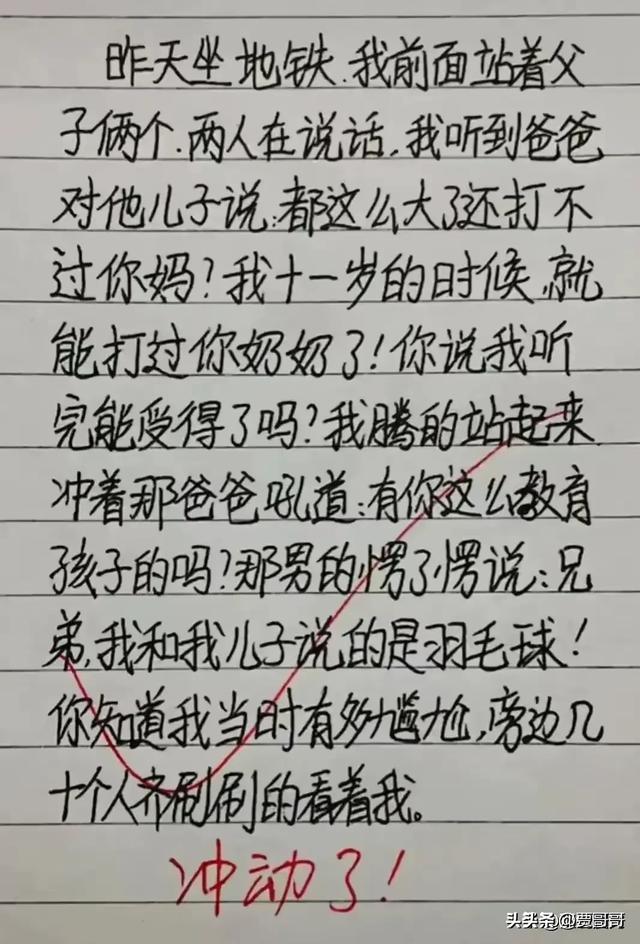 昨天坐地铁.我前面站着父
子俩个.两人在说话,我听到爸爸
对他儿子说:都这么大了还打不
过你妈?我十一岁的时候,就
能打过你奶奶了!你说我听
完能受得了吗?我腾的站起来
冲着那爸爸吼道:有你这么教育
孩子的吗?那男的愣了愣说:兄
弟,我和我儿子说的是羽毛球!
你知道我当时有多尴尬,旁边几
十个人齐刷刷的看着我。
冲动了!
头条@贾哥哥